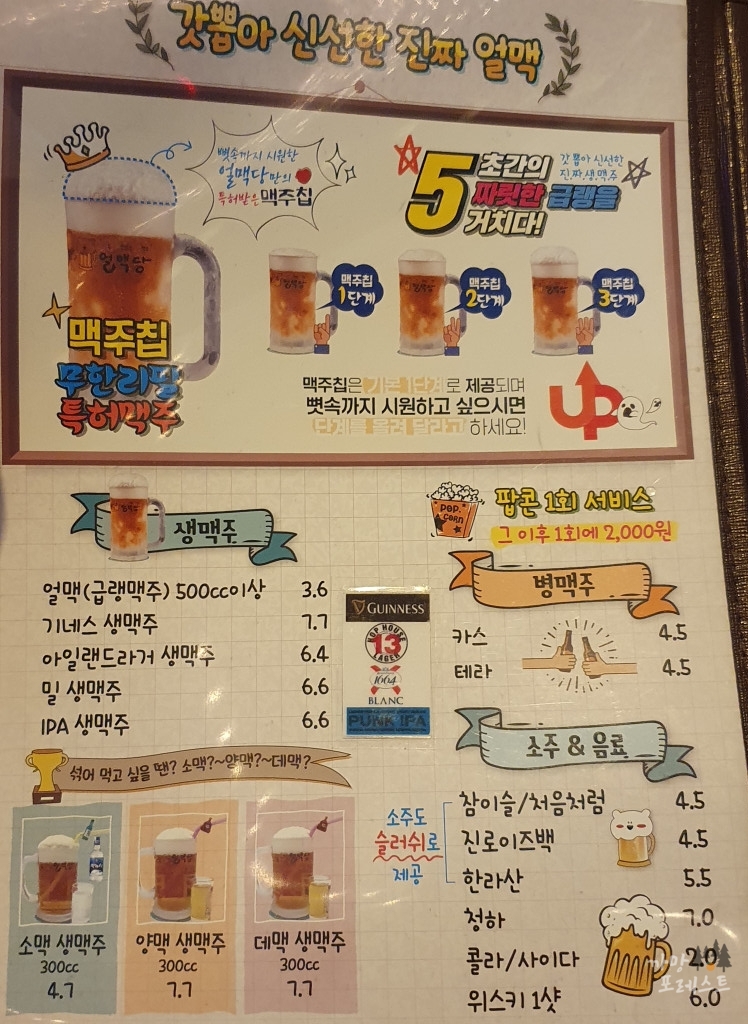 갓뽑아 신선한 진짜 얼맥
뼛속까지 시원한
얼맥당만의
특허받은 맥주칩
5초간의
짜릿한 급랭을
거치다!
갓 뽑아 신선한
진.짜.생.맥.주
얼맥당
맥주칩
무한리필
특허맥주
맥주칩
1단계
맥주칩
2단계
맥주칩
3단계
맥주칩은 기본 1단계로 제공되며
뼛속까지 시원하고 싶으시면
단계를 올려 달라고 하세요!
UP
생맥주
얼맥(급랭맥주) 500cc이상 3.6
기네스 생맥주 7.7
아일랜드라거 생맥주 6.4
밀 생맥주 6.6
IPA 생맥주 6.6
GUINNESS
HOP HOUSE
13
LAGER
1664
BLANC
PUNK IPA
POP
CORN
팝콘 1회 서비스
그 이후 1회에 2,000원
병맥주
카스 4.5
테라 4.5
소주 & 음료
소주도
슬러쉬로
제공
참이슬/처음처럼 4.5
진로이즈백 4.5
한라산 5.5
청하 7.0
콜라/사이다 2.0
위스키 1샷 6.0
섞어 먹고 싶을 땐? 소맥?~양맥?~데맥?
소맥 생맥주
300cc
4.7
양맥 생맥주
300cc
7.7
데맥 생맥주
300cc
7.7
포레스트